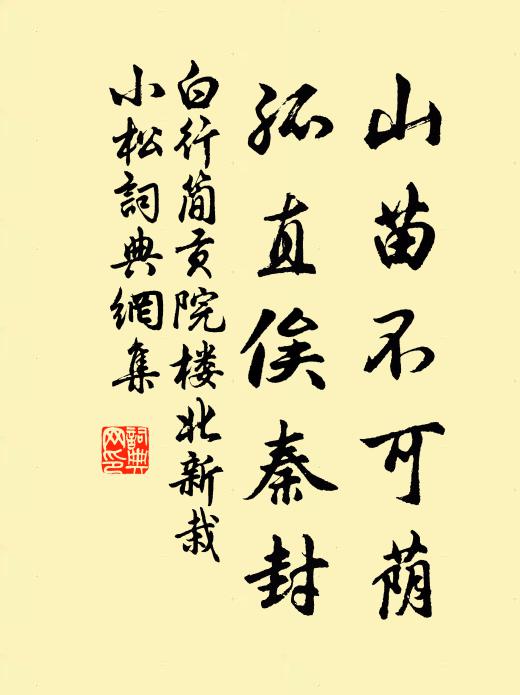 山苗不可荫
孤直俟秦封
白行简贡院楼北新栽
小松詞典網集
詞典
网印